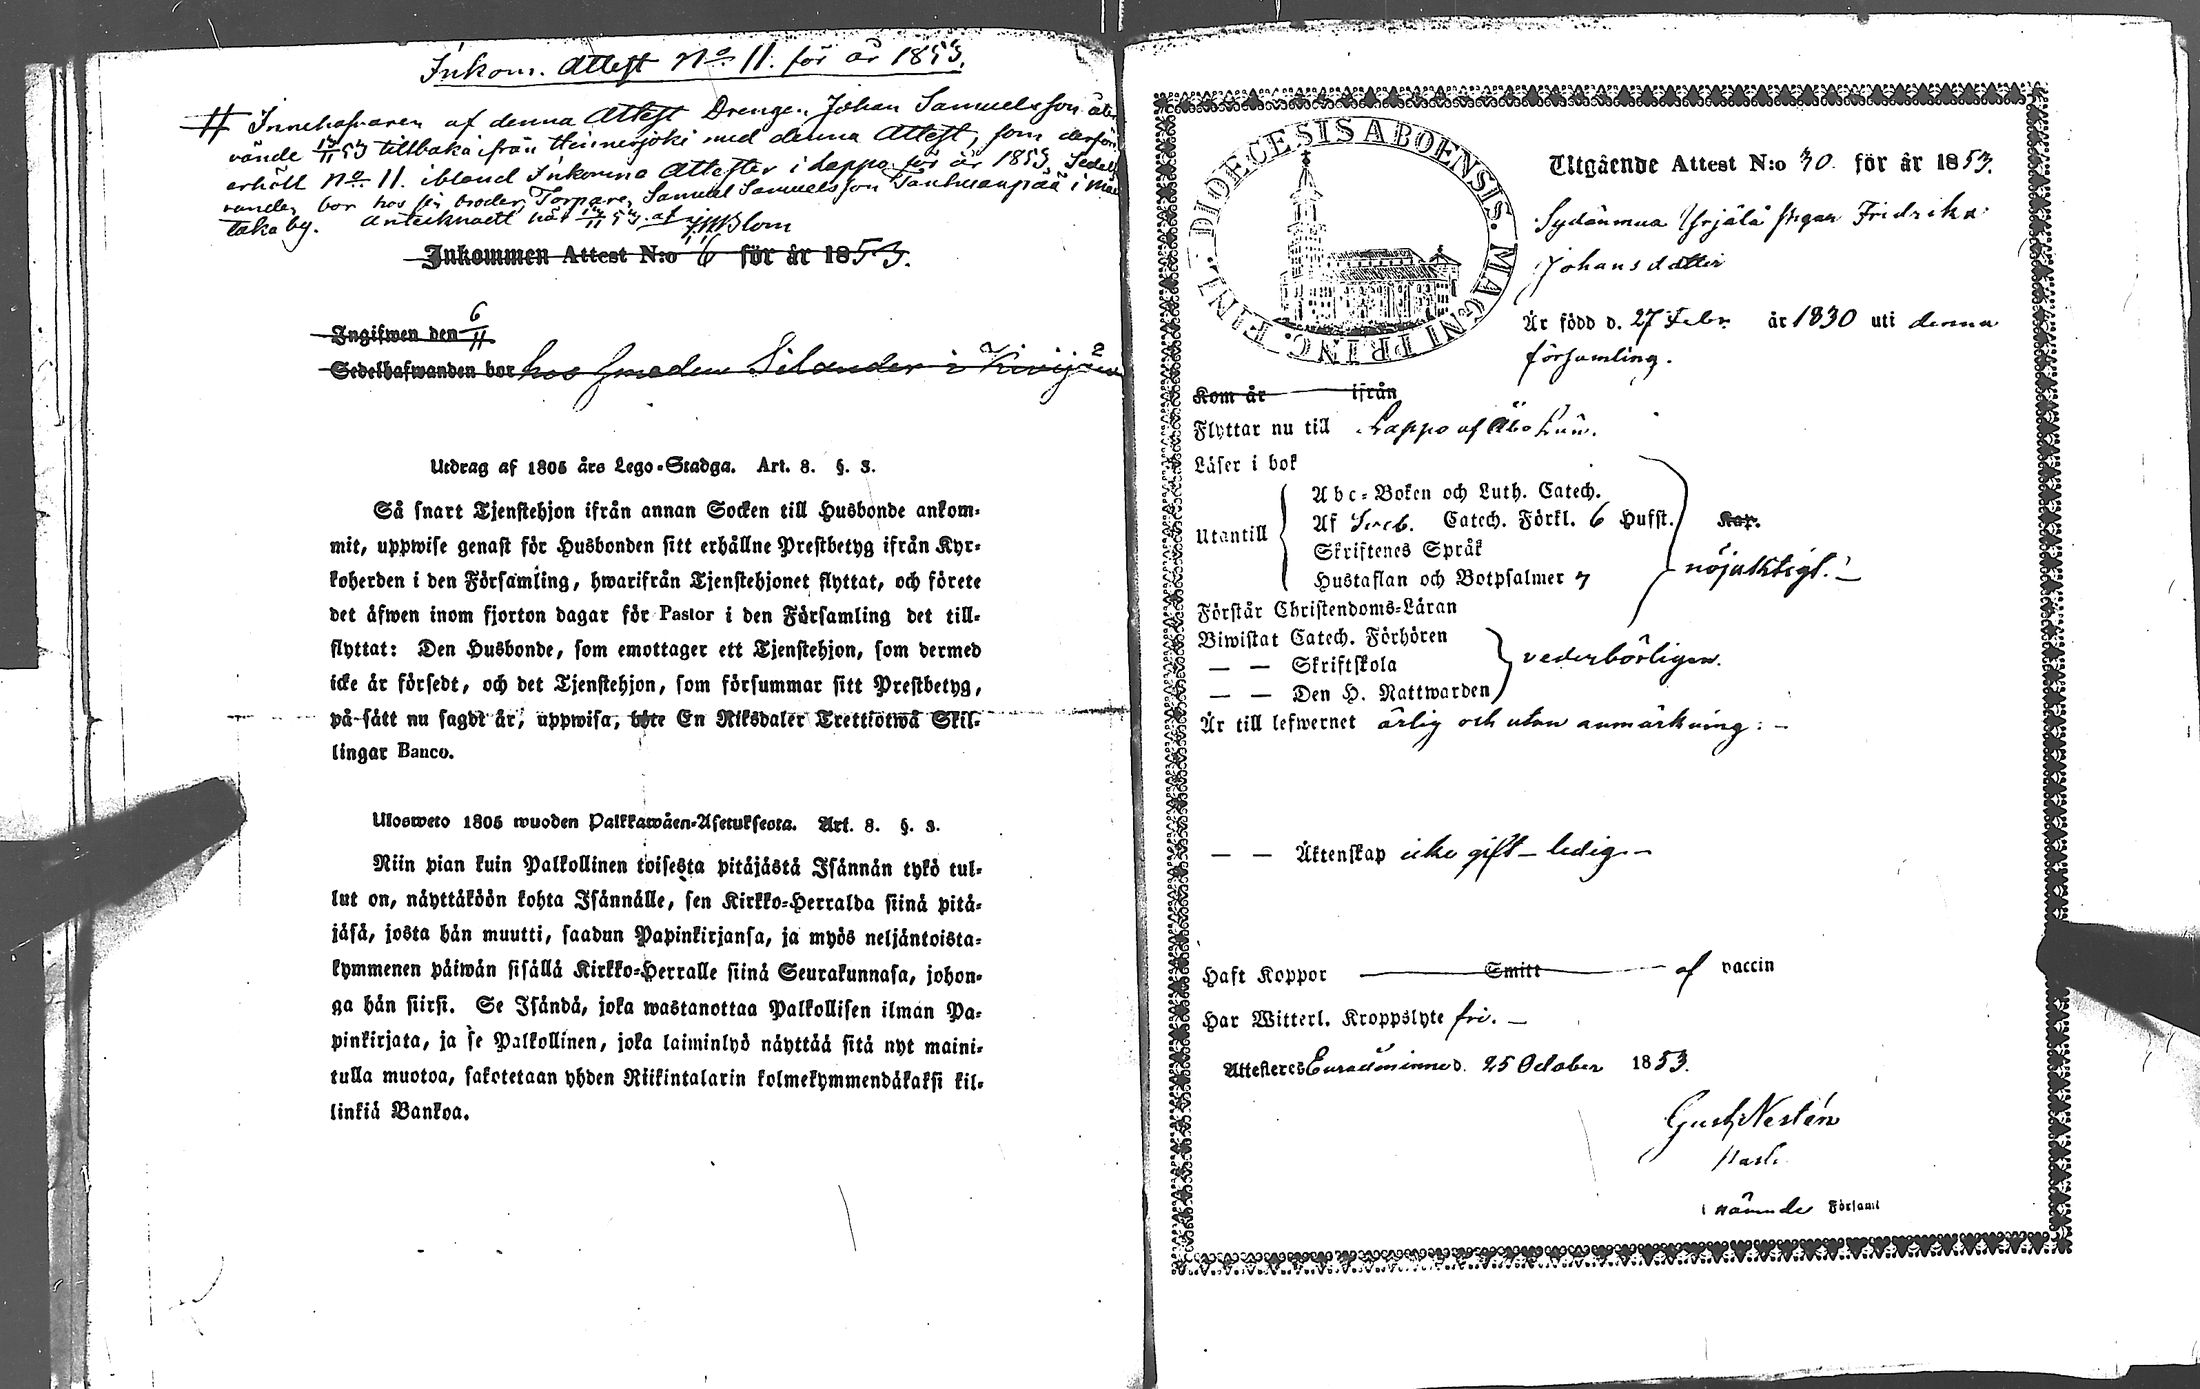 Inkom. Attest No 11. för år 1853.
# Innehafvaren af denna Attest Drengen Johan Samuelsson åter
vände 13/11 53 tillbaka ifrån Hinnerjoki med denna Attest, som derför
erhöll No 11. ibland Inkomna Attester i Lappo för år 1853. Sedel
vanden bor hos sin broder, Torparen Samuel Samuelsson i
taka by. Antecknadt
Inkommen Attest N:o 6 för år 1853.
Ingifwen den 6/11
Sedelhafwanden bor hos Smeden Silander i
Utdrag af 1805 års Lego-Stadga. Art. 8. §. 3.
Så snart Tjenstehjon ifrån annan Socken till Husbonde ankom-
mit, uppwise genast för Husbonden sitt erhållne Prestbetyg ifrån Kyr-
koherden i den Församling, hwarifrån Tjenstehjonet flyttat, och förete
det äfwen inom fjorton dagar för Pastor i den Församling det till-
flyttat: Den Husbonde, som emottager ett Tjenstehjon, som dermed
icke är försedt, och det Tjenstehjon, som försummar sitt Prestbetyg,
på sätt nu sagdt är, uppwisa, böte En Riksdaler Trettiotwå Skil-
lingar Banco.
Ulosweto 1805 wuoden Palkkawäen-Asetuksesta. Art. 8. §. 3.
Niin pian kuin Palkollinen toisesta pitäjästä Isännän tykö tul-
lut on, näyttäköön kohta Isännälle, sen Kirkko-Herralda siinä pitä-
jäsä, josta hän muutti, saadun Papinkirjansa, ja myös neljäntoista-
kymmenen päiwän sisällä Kirkko-Herralle siinä Seurakunnasa, johon-
ga hän siirsi. Se Isändä, joka wastanottaa Palkollisen ilman Pa-
pinkirjata, ja se Palkollinen, joka laiminlyö näyttää sitä nyt maini-
tulla muotoa, sakotetaan yhden Riikintalarin kolmekymmendäkaksi kil-
linkiä Bankoa.
DIOECESIS ABOENSIS. MAGNI PRINC. FINL.
Utgående Attest N:o 30. för år 1853.
Sydänmaa Yrjälä Pigan Fridrika
Johansdotter
Är född d. 27 Febr. år 1830 uti denna
församling.
Kom år ifrån
Flyttar nu till Lappo af Åbo Län.
Läser i bok
Abc-Boken och Luth. Catech.
Utantill
Af Sveb. Catech. Förkl. 6 Hufst. Kap.
Skriftenes Språk
Hustaflan och Botpsalmer 7
nöjaktigt.
Förstår Christendoms-Läran
Biwistat Catech. Förhören
— — Skriftskola
vederbörligen.
— — Den H. Nattwarden
Är till lefwernet ärlig och utan anmärkning: —
— — Äktenskap icke gift — ledig. —
Haft Koppor Smitt af vaccin
Har Witterl. Kroppslyte fri. —
Attesteres Euraåminne d. 25 October 1853.
Gust. Neslén
i nämnde Församl